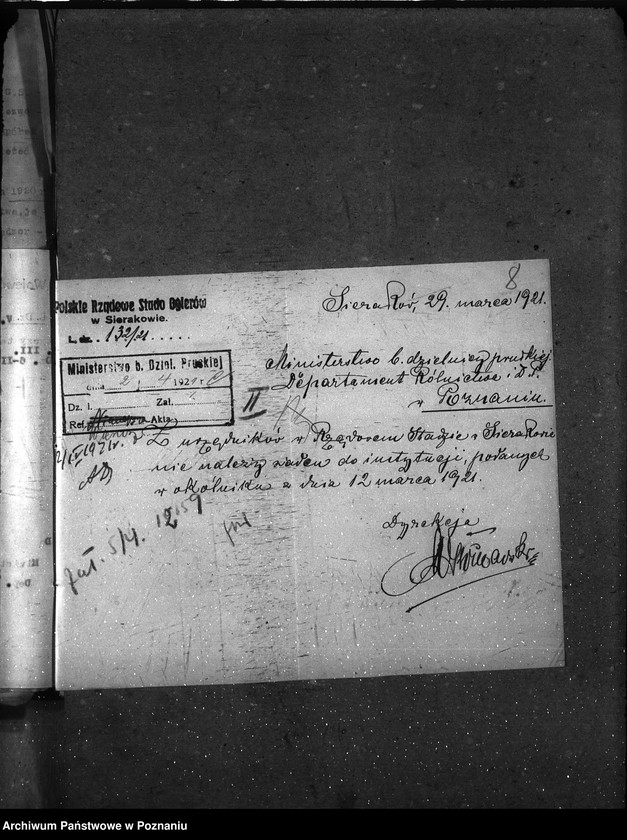 8
Polskie Rządowe Stado Ogierów
w Sierakowie.
L. dz. 132/21
Sieraków, 29. marca 1921.
Ministerstwo b. Dziel. Pruskiej
dnia 2. 4 1921 r.
Dz. I. Zał.
Ref. Akta
II
Ministerstwo b. dzielnicy pruskiej
Departament Rolnictwa i D. P.
w Poznaniu.
Z urzędników w Rządowem Stadzie w Sierakowie
nie należy żaden do instytucji, podanych
w okólniku z dnia 12 marca 1921.
2/IV 1921 r.
5/4. 12159
Dyrekcja
Archiwum Państwowe w Poznaniu